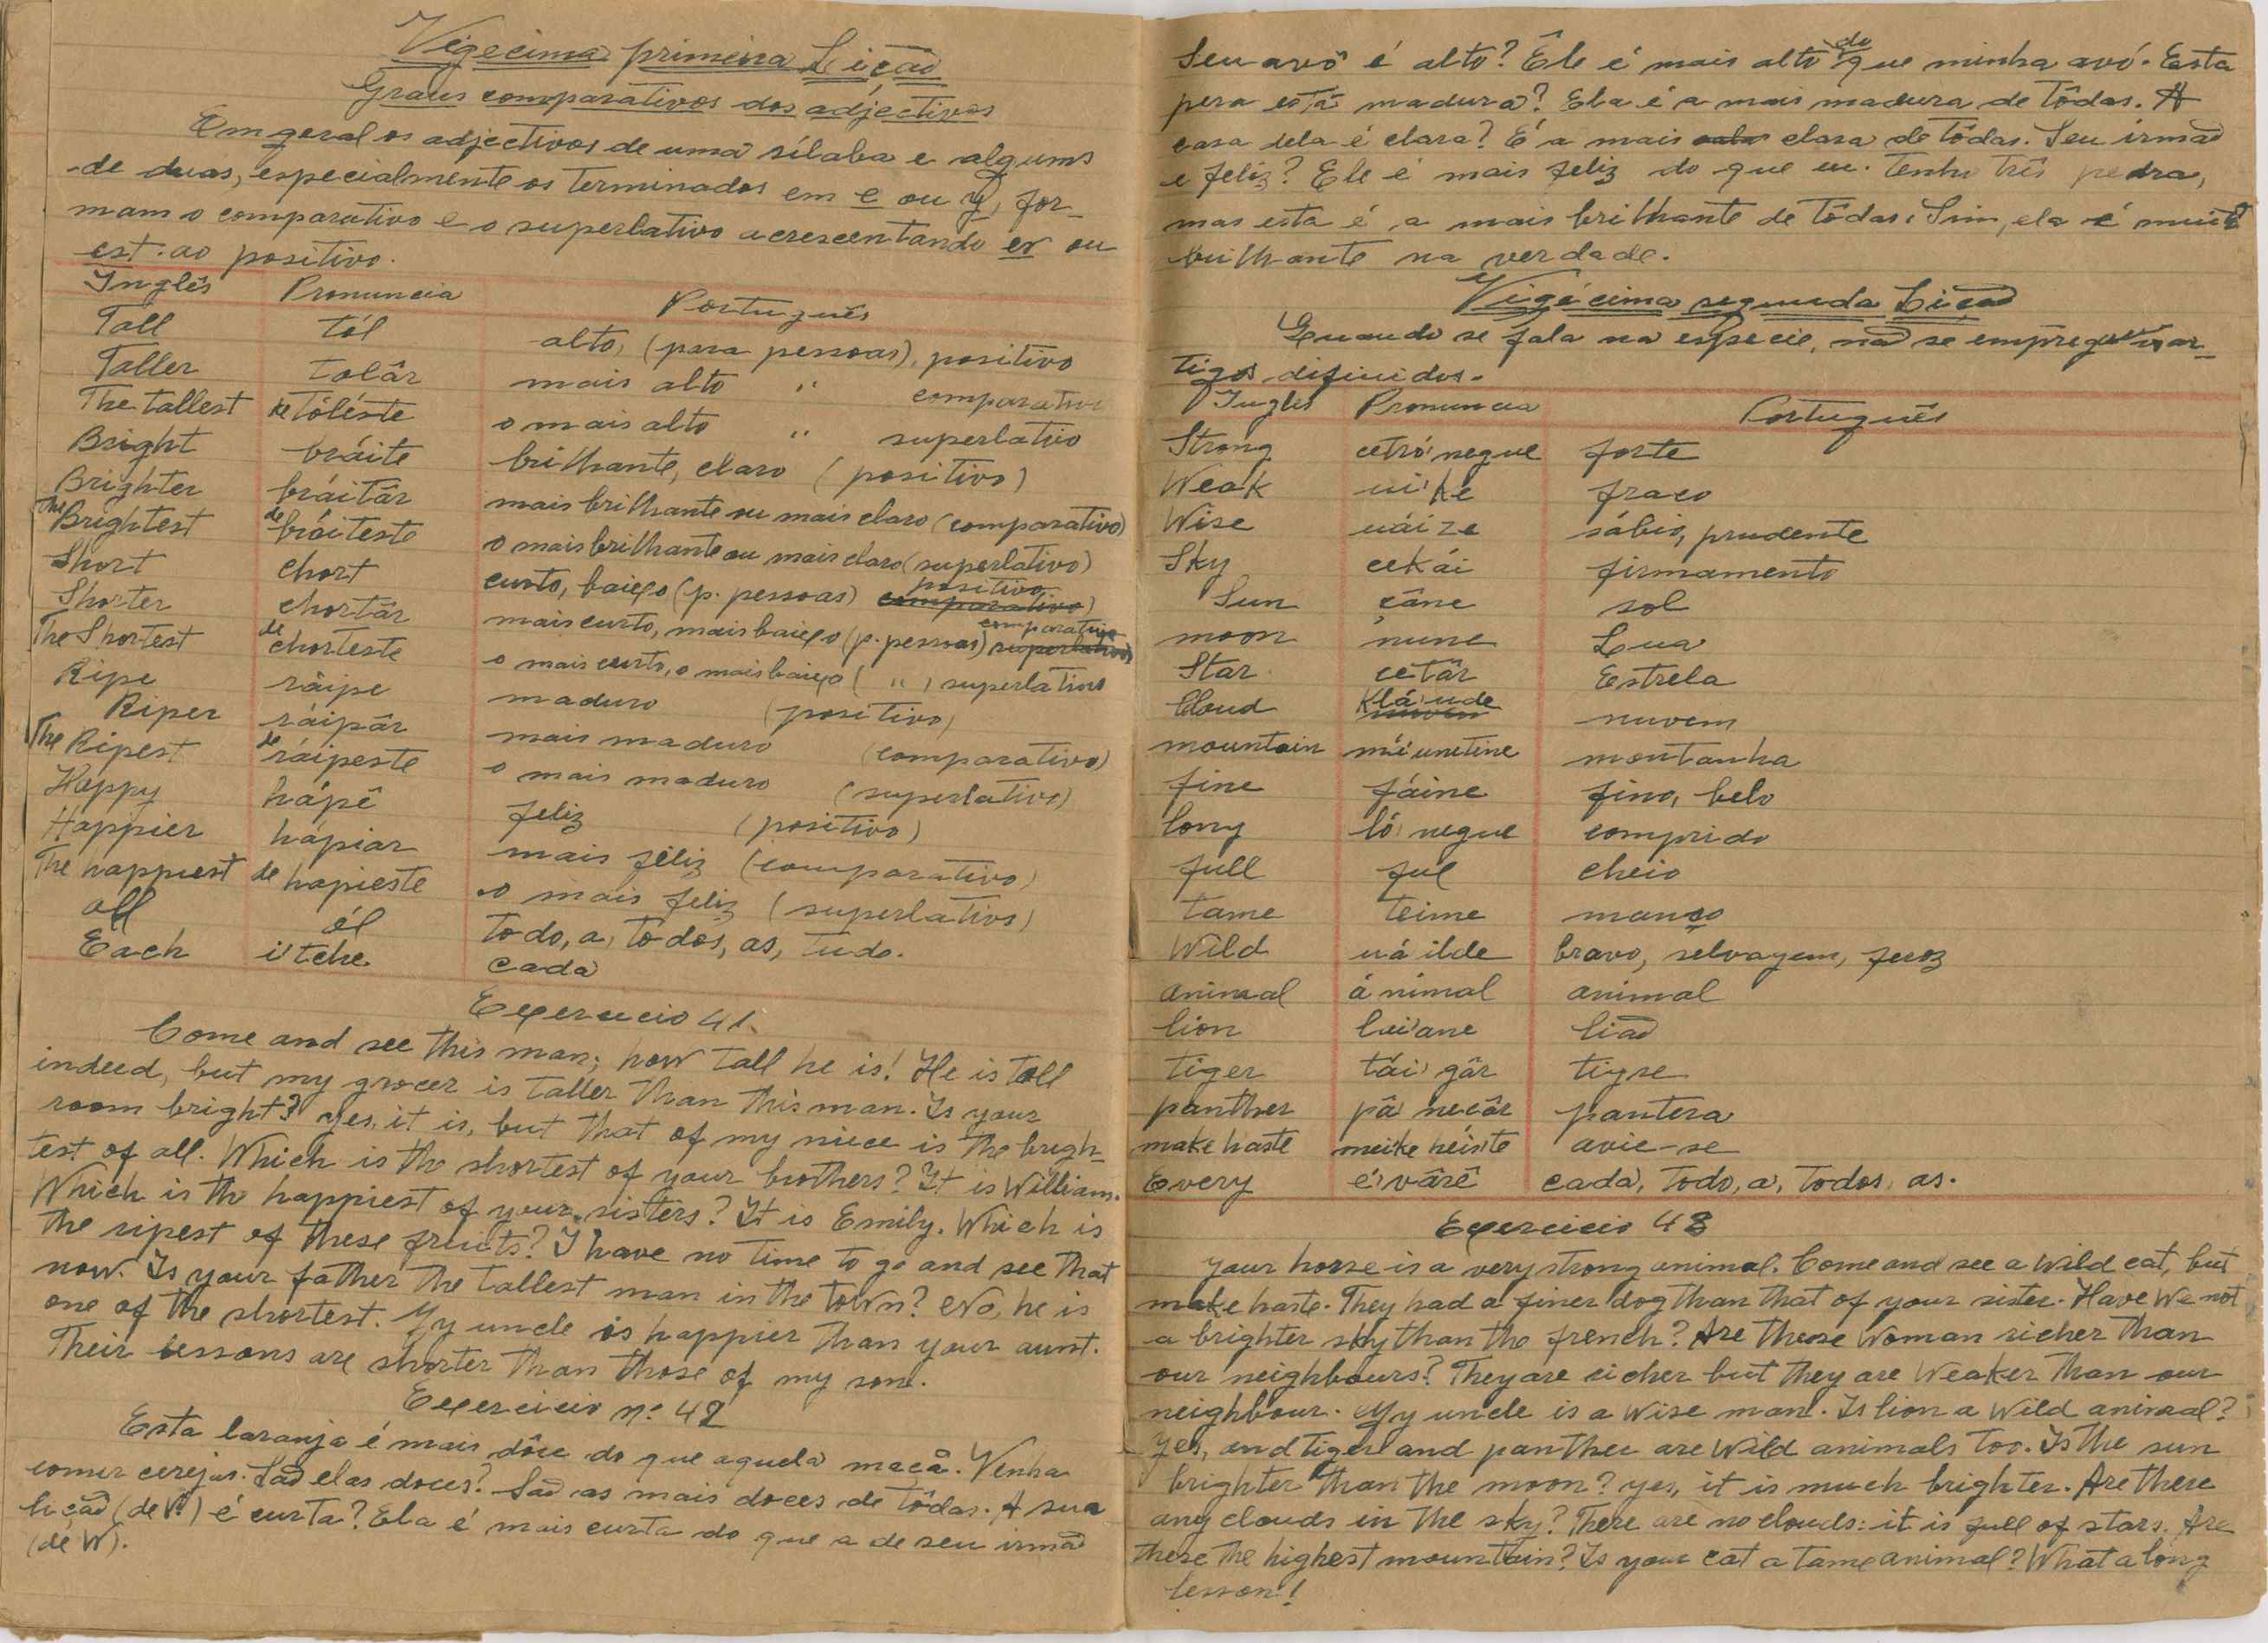 Vigecima primeira Lição
Graus comparativos dos adjectivos
Em geral os adjectivos de uma sílaba e alguns
de duas, especialmente os terminados em e ou y, for-
mam o comparativo e o superlativo acrescentando er ou
est. ao positivo.
Inglês Pronuncia Português
Tall tól alto, (para pessoas), positivo
Taller tolâr mais alto " comparativo
The tallest de tóléste o mais alto " superlativo
Bright bráite brilhante, claro (positivo)
Brighter bráitâr mais brilhante ou mais claro (comparativo)
The Brightest de bráiteste o mais brilhante ou mais claro (superlativo)
Short chort curto, baixo (p. pessoas) comparativo positivo)
Shorter chortâr mais curto, mais baixo (p. pessoas) superlativo comparativo
The Shortest de chorteste o mais curto, o mais baixo ( " ) superlativo
Ripe ráipe maduro (positivo)
Riper ráipâr mais maduro (comparativo)
The Ripest de ráipeste o mais maduro (superlativo)
Happy hápê feliz (positivo)
Happier hápiar mais feliz (comparativo)
The happiest de hapieste o mais feliz (superlativo)
all ól todo, a, todos, as, tudo.
Each i'tche cada
Exercicio 41.
Come and see this man; how tall he is! He is tall
indeed, but my grocer is taller than this man. Is your
room bright? Yes, it is, but that of my niece is the brigh-
test of all. Which is the shortest of your brothers? It is William.
Which is the happiest of your sisters? It is Emily. Which is
the ripest of these fruits? I have no time to go and see that
now. Is your father the tallest man in the town? No, he is
one of the shortest. My uncle is happier than your aunt.
Their lessons are shorter than those of my son.
Exercicio nº 42
Esta laranja é mais dôce do que aquela maçã. Venha
comer cerejas. São elas doces? São as mais doces de tôdas. A sua
lição (de V.) é curta? Ela é mais curta do que a de seu irmão
(de V).
Seu avô é alto? Êle é mais alto do que minha avó. Esta
pera está madura? Ela é a mais madura de tôdas. A
casa dela é clara? É a mais clara de tôdas. Seu irmão
e feliz? Ele é mais feliz do que eu. Tenho três pedra,
mas esta é a mais brilhante de tôdas. Sim, ela é muito
brilhante na verdade.
Vigécima segunda Lição
Quando se fala na especie, não se empregam ar-
tigos difinidos.
Inglês Pronuncia Português
Strong cetró'negue forte
Weak ui'ke fraco
Wise uáize sábio, prudente
Sky cekái firmamento
Sun çâne sol
moon mune Lua
Star cetár Estrela
Cloud nuvem klá'ude nuvem
mountain máunetine montanha
fine fáine fino, belo
long ló'negue comprido
full ful cheio
tame teime manso
Wild uá ilde bravo, selvagem, feroz
animal á nimal animal
lion lai'ane lião
tiger tái'gâr tigre
panther pâ'necâr pantera
make haste meike héiste avie-se
Every é'vârê cada, todo, a, todos, as.
Exercicio 43
Your horse is a very strong animal. Come and see a wild cat, but
make haste. They had a finer dog than that of your sister. Have we not
a brighter sky than the french? Are these Woman richer than
our neighbours? They are richer but they are Weaker than our
neighbour. My uncle is a wise man. Is lion a wild animal?
Yes, and tiger and panther are wild animals too. Is the sun
brighter than the moon? yes, it is much brighter. Are there
any clouds in the sky? There are no clouds: it is full of stars. Are
these the highest mountain? Is your cat a tame animal? What a long
lesson!